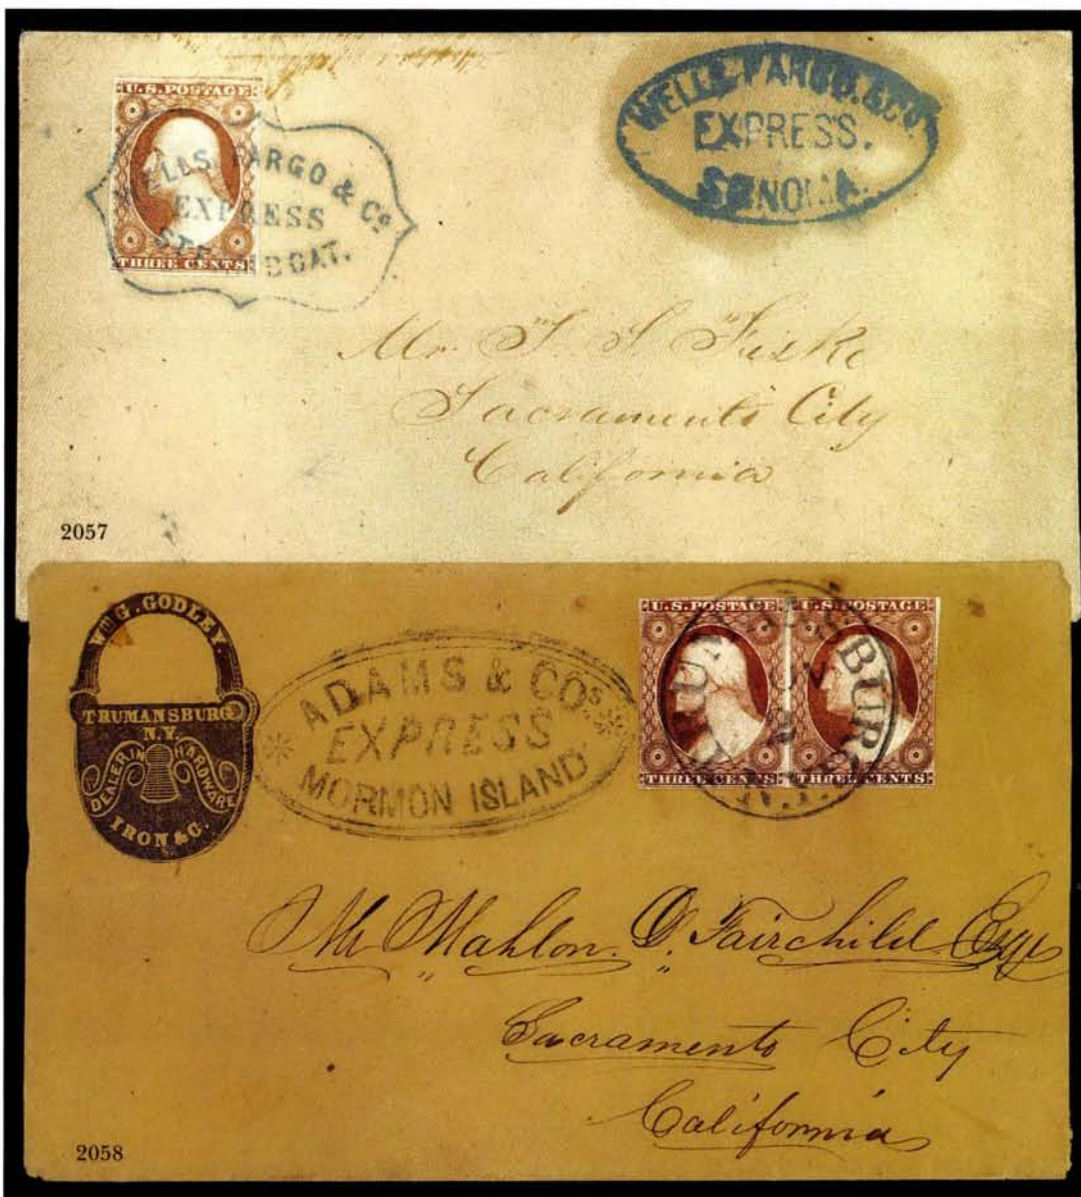 U.S. POSTAGE
THREE CENTS
WELLS, FARGO & Co.
EXPRESS
STEAMBOAT.
WELLS, FARGO & CO.
EXPRESS.
SONOMA.
Mr. T. S. Fiske
Sacramento City
California
2057
WM G. GODLEY.
TRUMANSBURG
N.Y.
DEALER IN HARDWARE
IRON & C.
ADAMS & COs
EXPRESS
MORMON ISLAND
U.S. POSTAGE U.S. POSTAGE
THREE CENTS THREE CENTS
N.Y.
Mr Mahlon D. Fairchild Esqr
Sacramento City
California
2058